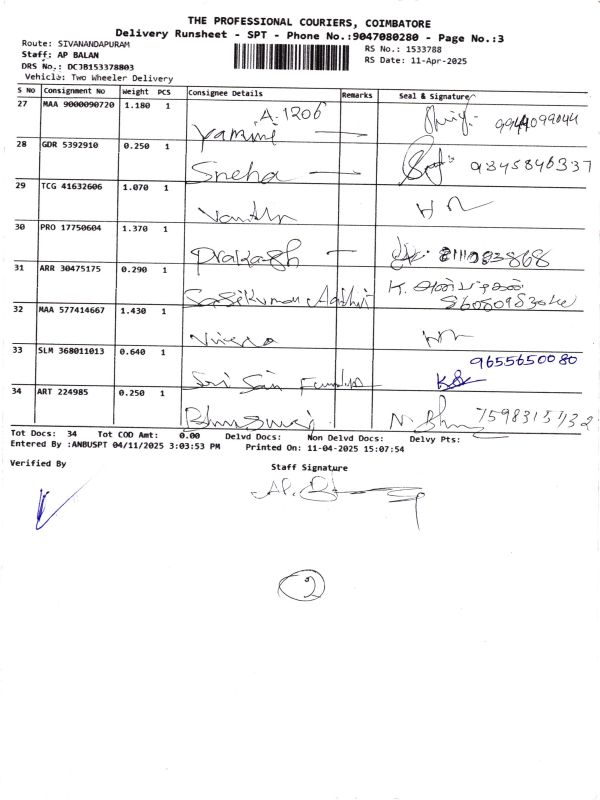 THE PROFESSIONAL COURIERS, COIMBATORE
Delivery Runsheet - SPT - Phone No.:9047080280 - Page No.:3
Route: SIVANANDAPURAM
Staff: AP BALAN
DRS No.: DCJB153378803
Vehicle: Two Wheeler Delivery
RS No.: 1533788
RS Date: 11-Apr-2025
S No Consignment No Weight PCS Consignee Details Remarks Seal & Signature
27 MAA 9000090720 1.180 1 A-1206
Yamini
28 GDR 5392910 0.250 1 Sneha 9345846337
29 TCG 41632606 1.070 1
30 PRO 17750604 1.370 1 Prakash
31 ARR 30475175 0.290 1 Sasikumar K.
32 MAA 577414667 1.430 1
33 SLM 368011013 0.640 1 Sri Sai 9655650080
34 ART 224985 0.250 1 N. Bhu
Tot Docs: 34 Tot COD Amt: 0.00 Delvd Docs: Non Delvd Docs: Delvy Pts:
Entered By :ANBUSPT 04/11/2025 3:03:53 PM Printed On: 11-04-2025 15:07:54
Verified By
Staff Signature
2